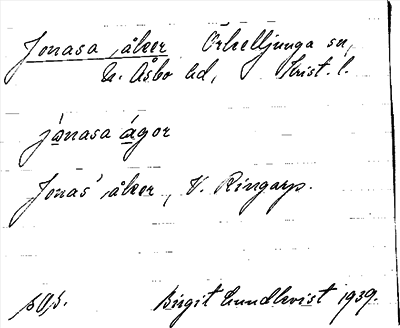 Jonasa åker Örkelljunga sn,
N. Åsbo hd, Krist. l.
jònasa ágor
Jonas' åker, V. Ringarp.
sОs.
Birgit Lundkvist 1939.